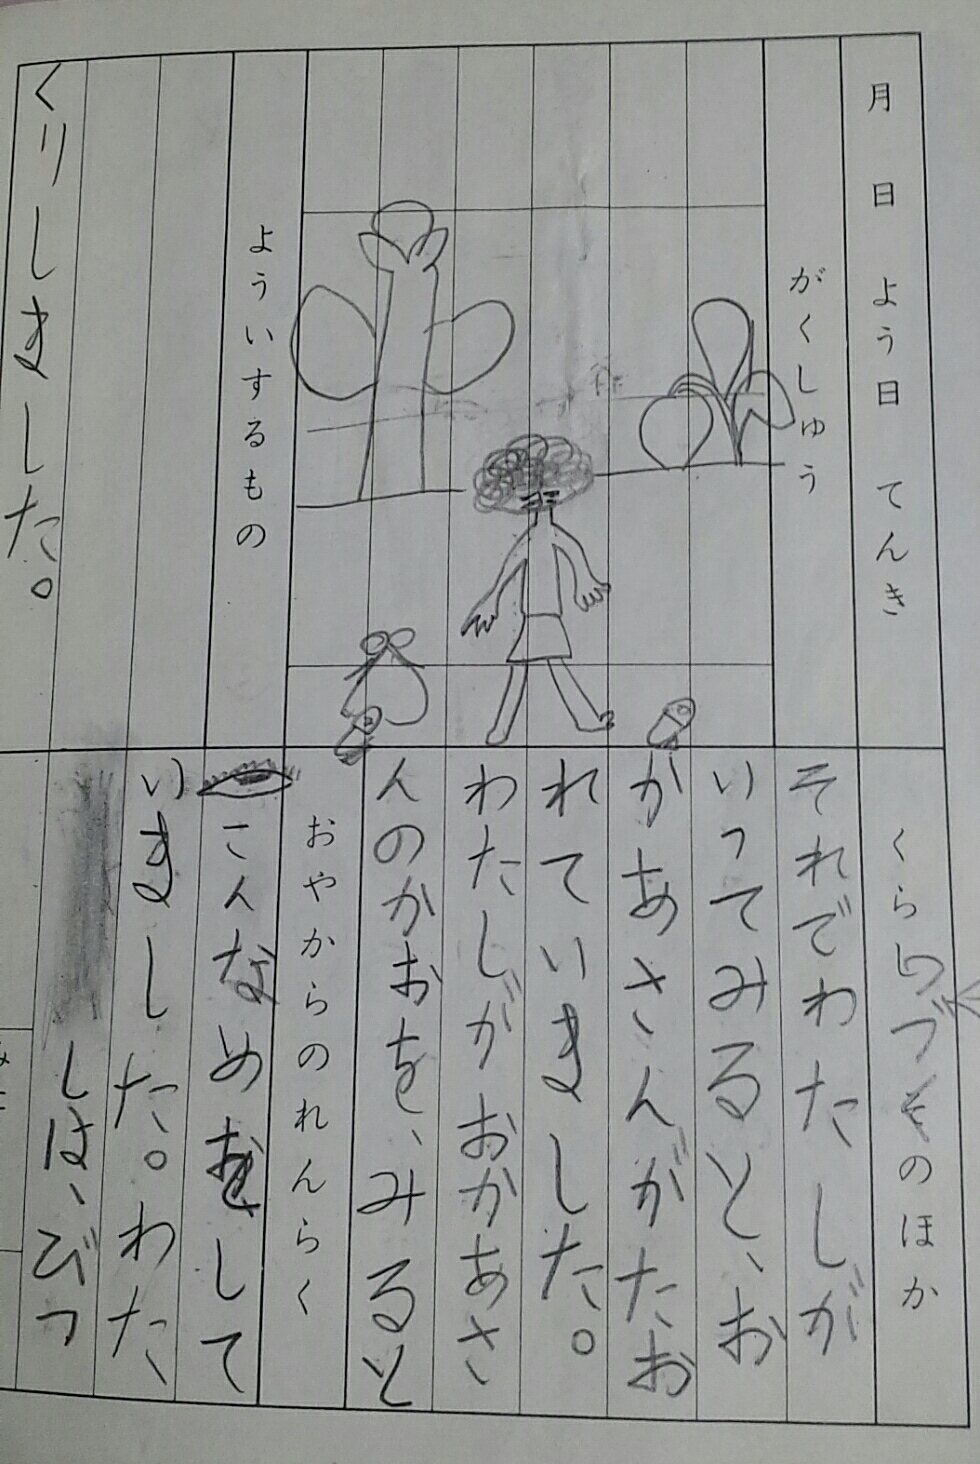 月 日 よう日 てんき
がくしゅう
よういするもの
くりしました。
くら づ そのほか
それでわたしが
いってみると、お
かあさんがたお
れていました。
わたしがおかあさ
んのかおを、みると
おやからのれんらく
こんなめをして
いました。わた
しは、びっ